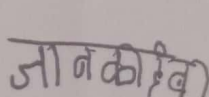 जानकीदेवी